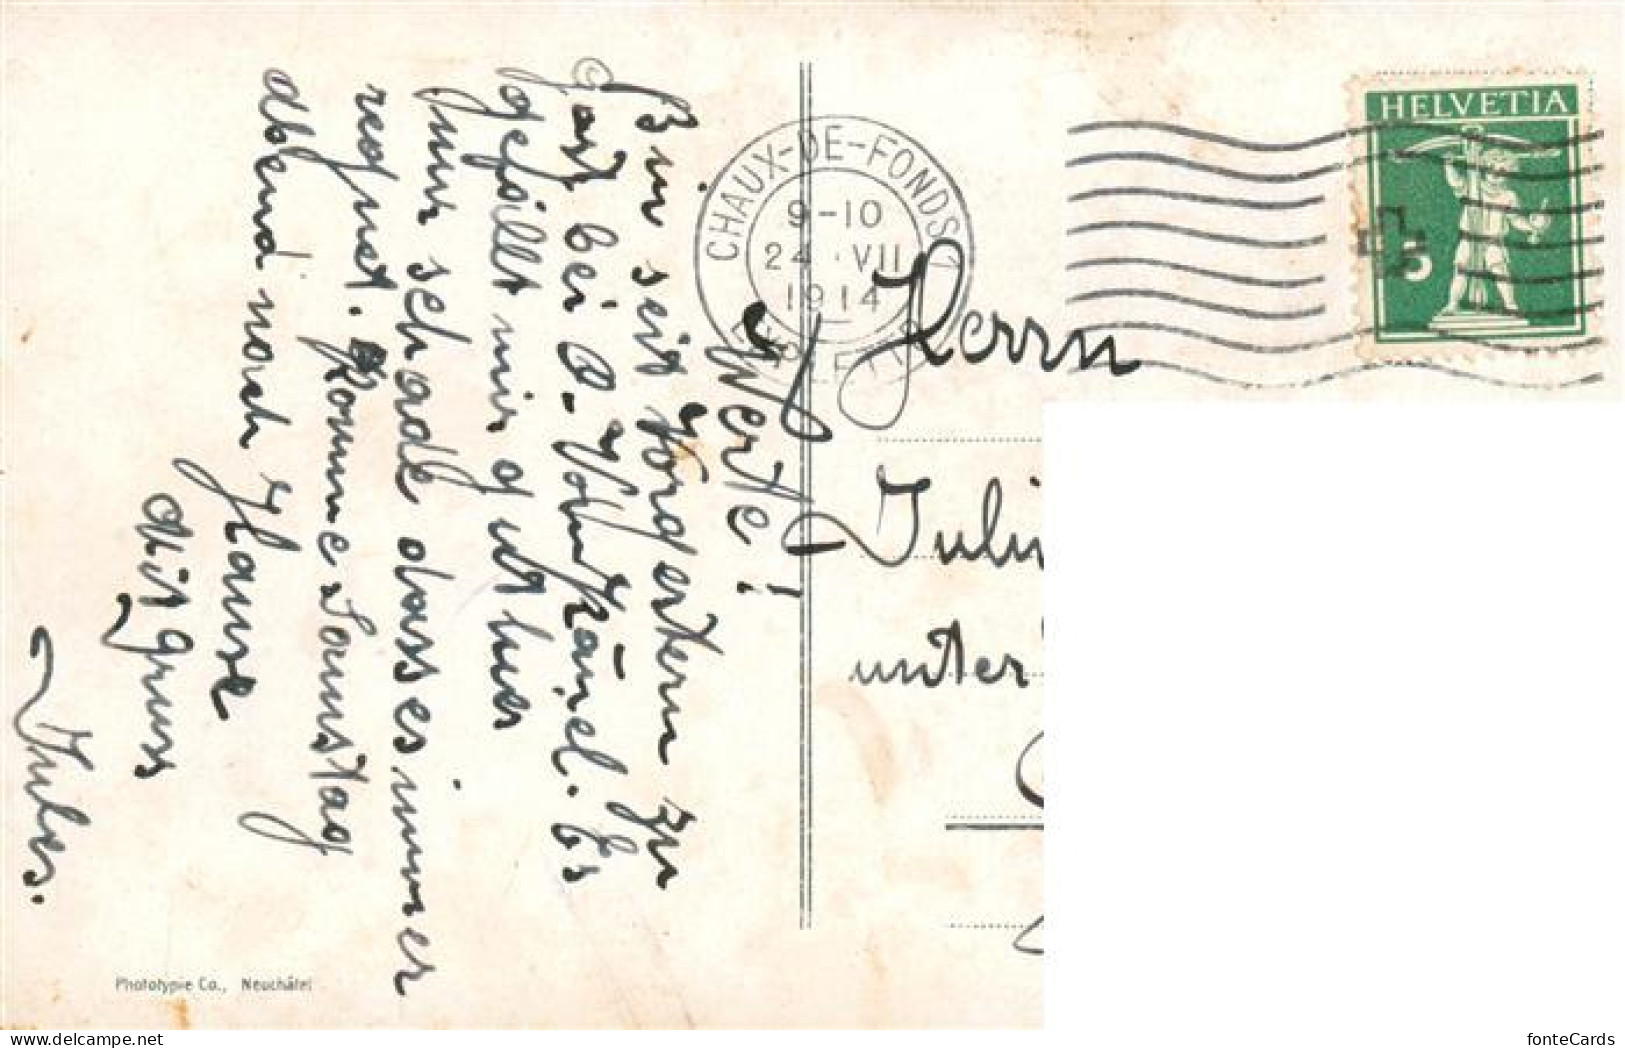 Werte!
Bin seit Vorgestern zu
Gast bei A. Vonkänel. Es
gefällt mir gut hier
nur schade dass es immer
regnet. Komme Samstag
abend nach Hause
Mit Gruss
Jules.
Phototypie Co., Neuchâtel
CHAUX-DE-FONDS
9-10
24.VII
1914
EXP. LETTR.
HELVETIA
5
Herrn
unter
fonteCards